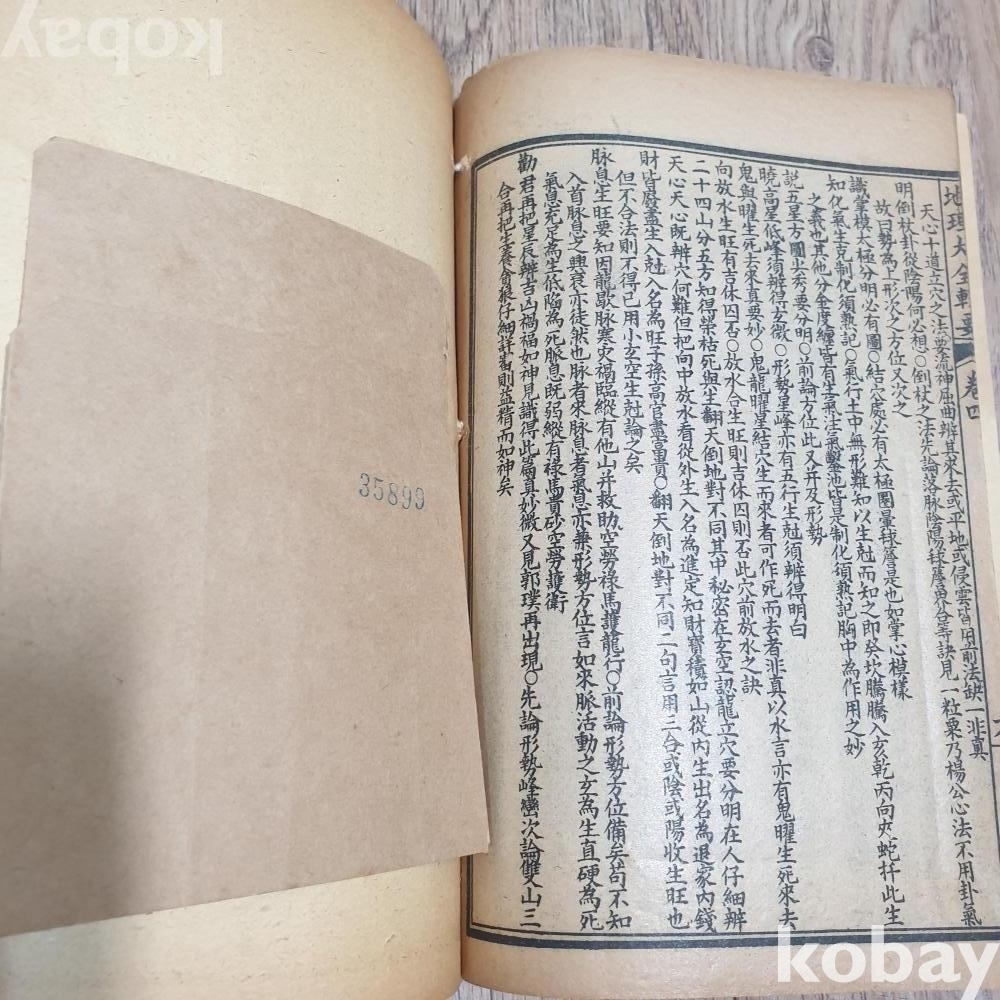 kobay
地理大全輯要
卷四
天心十道立穴之法要流神屈曲辨其來去或平地或侵雲皆因前法缺一非真
明倒杖卦從陰陽何必想○倒杖之法先論落脉陰陽毬簷界合等訣見一粒粟乃楊公心法不用卦氣
故曰勢為上形次之方位又次之
識掌模太極分明必有圖○結穴處必有太極圈暈毬簷是也如掌心模樣
知化氣生克制化須熟記○氣行土中無形難知以生尅而知之即癸坎騰騰入亥乾丙向夾蛇扦此生
之義也其他分金度纏皆有生氣注氣蟄池皆是制化須熟記胸中為作用之妙
說五星方圓尖秀要分明○前論方位此又并及形勢
曉高星低峰須辨得玄微○形勢星峰亦有五行生尅須辨得明白
鬼與曜生死去來真要妙○鬼龍曜星結穴生而來者可作死而去者非真以水言亦有鬼曜生死來去
向放水生旺有吉休囚否○放水合生旺則吉休囚則否此穴前放水之訣
二十四山分五方知得榮枯死與生翻天倒地對不同其中秘密在玄空認龍立穴要分明在人仔細辨
天心天心既辨穴何難但把向中放水看從外生入名為進定知財寶積如山從內生出名為退家內錢
財皆廢盡生入尅入名為旺子孫高官盡富貴○翻天倒地對不同二句言用三合或陰或陽收生旺也
但不合法則不得已用小玄空生尅論之矣
脉息生旺要知因龍歇脉寒灾禍臨縱有他山并救助空勞祿馬護龍行○前論形勢方位備矣苟不知
入首脉息之興衰亦徒然也脉者來脉息者氣息亦兼形勢方位言如來脉活動之玄為生直硬為死
氣息充足為生低陷為死脉息既弱縱有祿馬貴砂空勞護衛
勸君再把星辰辨吉凶禍福如神見識得此篇真妙微又見郭璞再出現○先論形勢峰巒次論雙山三
合再把生養會狼仔細詳審則益精而如神矣
35899
kobay